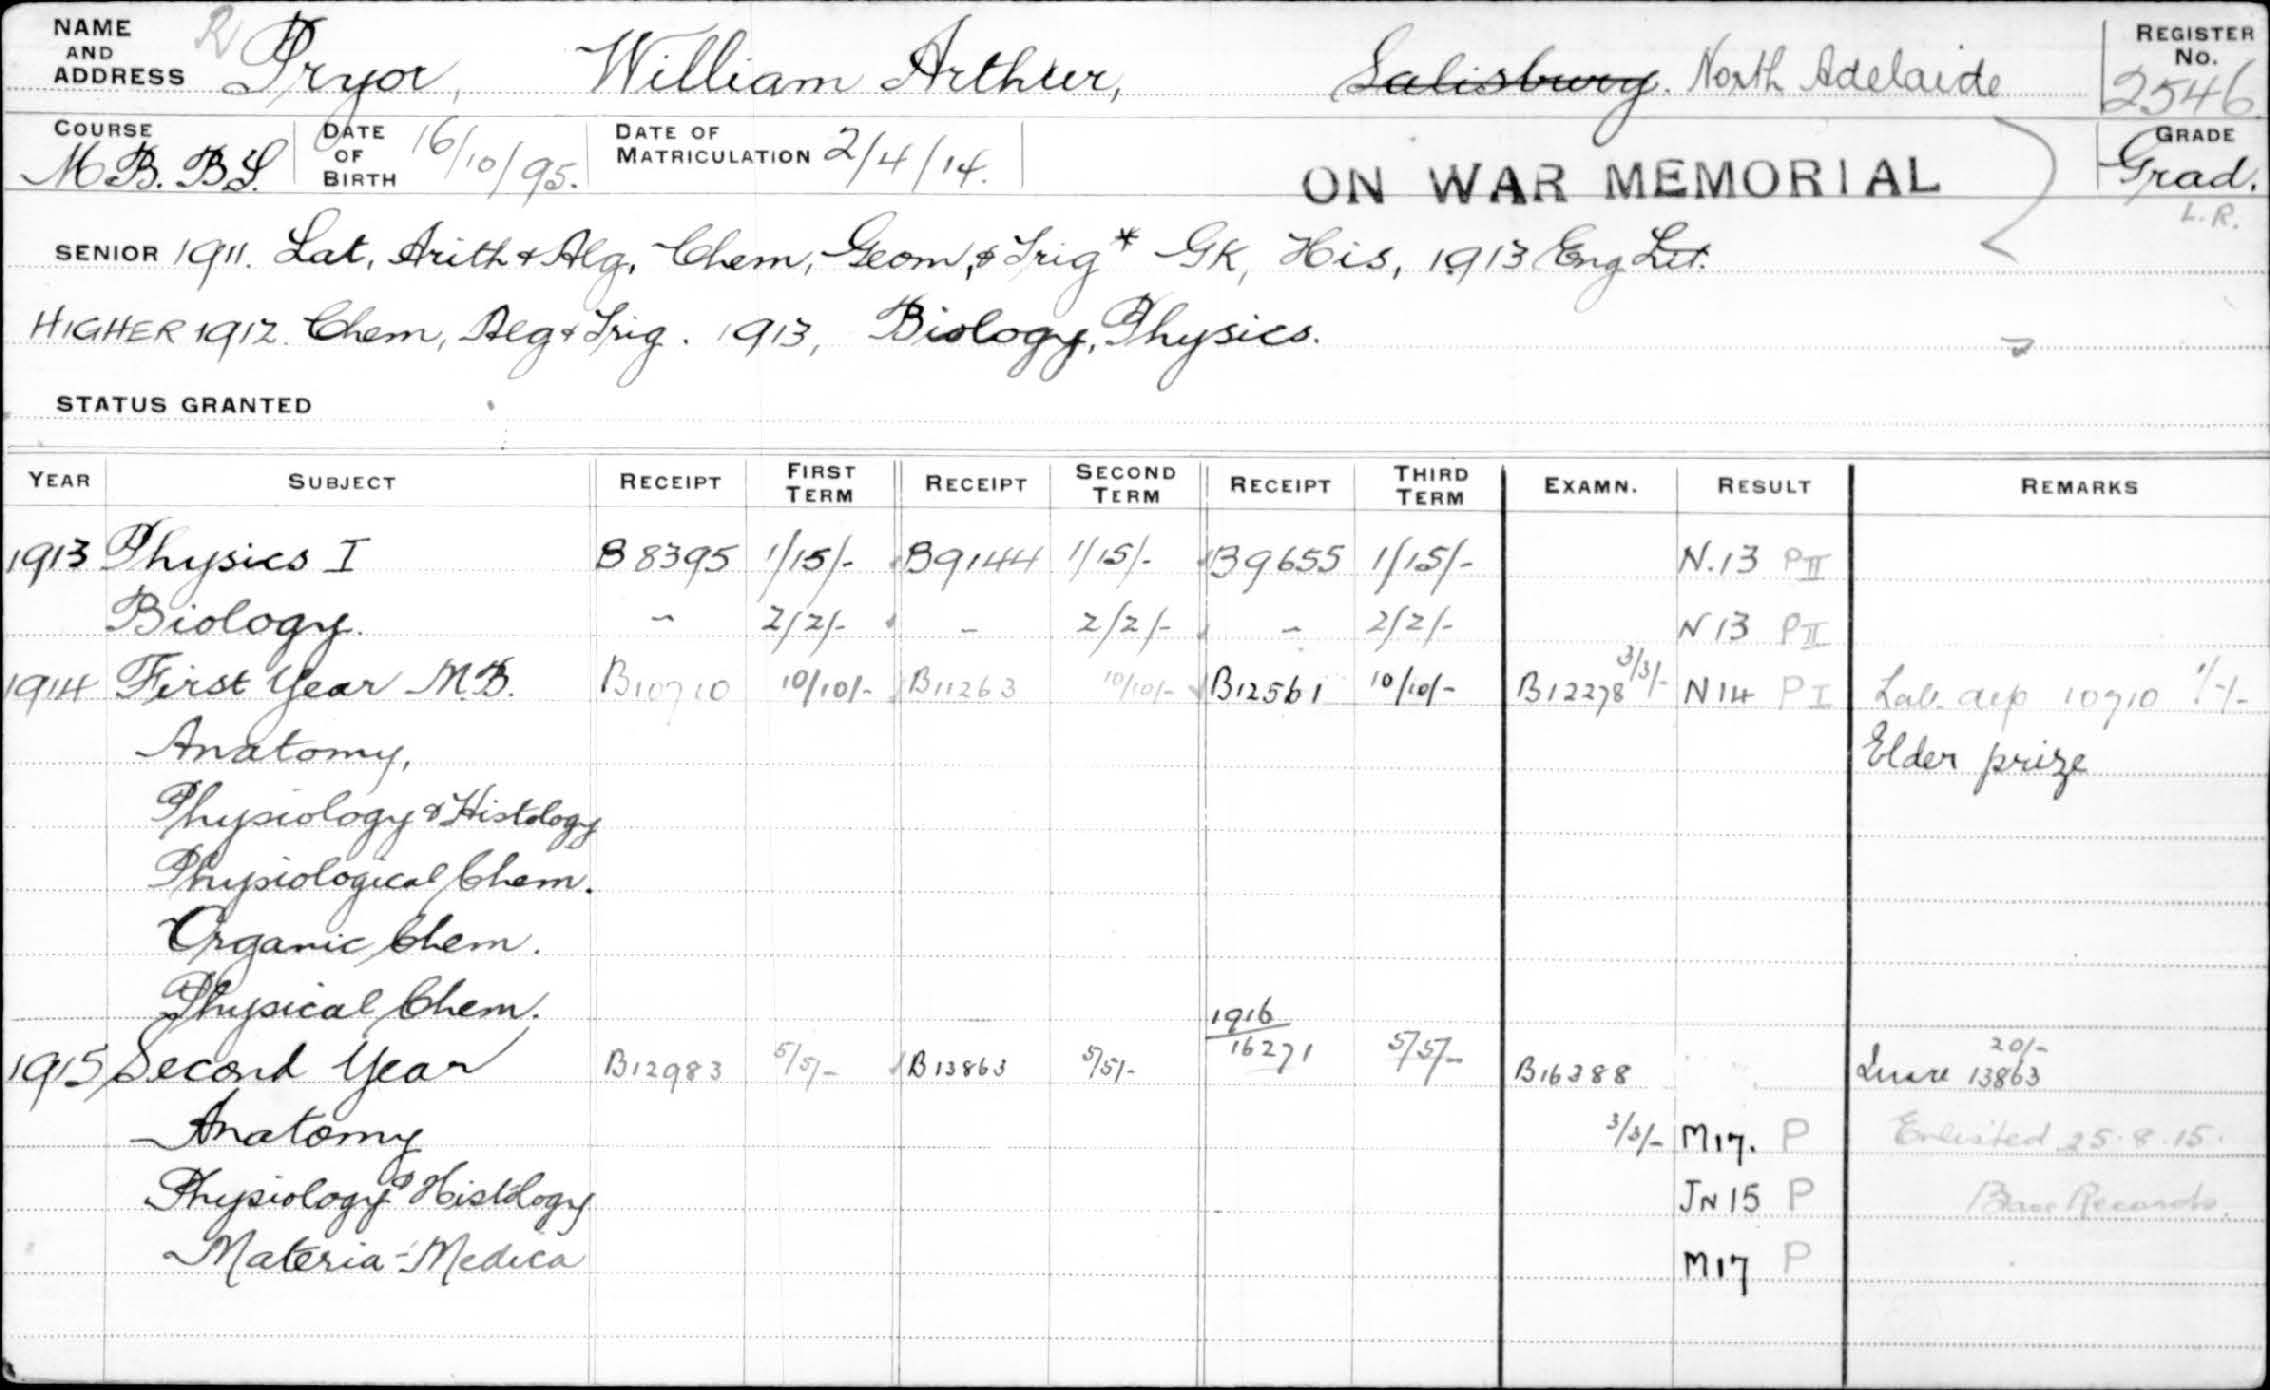 NAME AND ADDRESS R Pryor, William Arthur, Salisbury. North Adelaide REGISTER No. 2546
COURSE M.B. B.S. DATE OF BIRTH 16/10/95. DATE OF MATRICULATION 2/4/14. GRADE Grad.
ON WAR MEMORIAL
L.R.
SENIOR 1911. Lat, Arith & Alg, Chem, Geom, & Trig * GK, His, 1913 Eng Lit.
HIGHER 1912. Chem, Alg & Trig. 1913, Biology, Physics.
STATUS GRANTED
YEAR SUBJECT RECEIPT FIRST TERM RECEIPT SECOND TERM RECEIPT THIRD TERM EXAMN. RESULT REMARKS
1913 Physics I B8395 1/15/- B9144 1/15/- B9655 1/15/- N.13 P II
Biology. - 2/2/- - 2/2/- - 2/2/- N 13 P II
1914 First Year M.B. B10710 10/10/- B11263 10/10/- B12561 10/10/- B12278 3/3/- N14 P I Lab. dep 10710 1/-/-
Anatomy, Elder prize
Physiology & Histology
Physiological Chem.
Organic Chem.
Physical Chem.
1915 Second Year B12983 5/5/- B13863 5/5/- 1916 16271 5/5/- B16388 13863 20/-
Anatomy 3/3/- M17. P Enlisted 25.8.15.
Physiology & Histology JN 15 P Base Records.
Materia-Medica M17 P